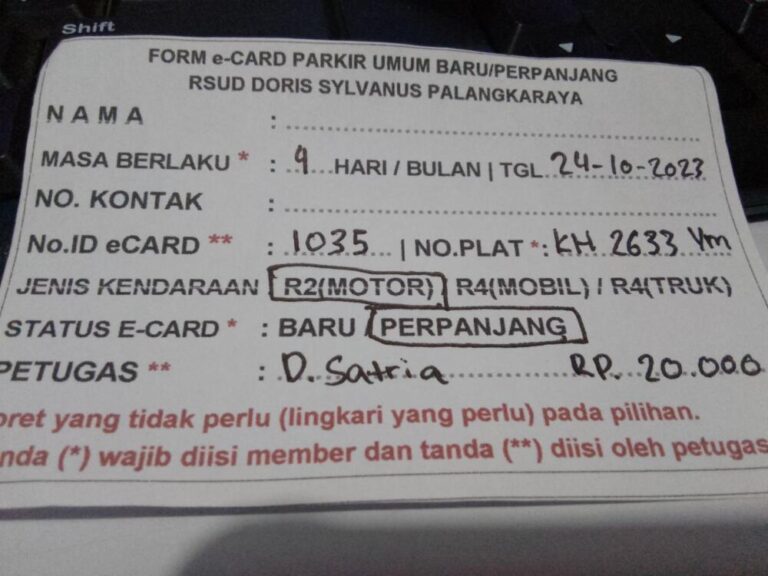 Shift
FORM e-CARD PARKIR UMUM BARU/PERPANJANG
RSUD DORIS SYLVANUS PALANGKARAYA
NAMA :
MASA BERLAKU * : 9 HARI / BULAN | TGL 24-10-2023
NO. KONTAK :
No.ID eCARD ** : 1035 | NO.PLAT *: KH 2633 Ym
JENIS KENDARAAN R2(MOTOR) R4(MOBIL) / R4(TRUK)
STATUS E-CARD * : BARU / PERPANJANG
PETUGAS ** : D. Satria RP. 20.000
oret yang tidak perlu (lingkari yang perlu) pada pilihan.
nda (*) wajib diisi member dan tanda (**) diisi oleh petugas